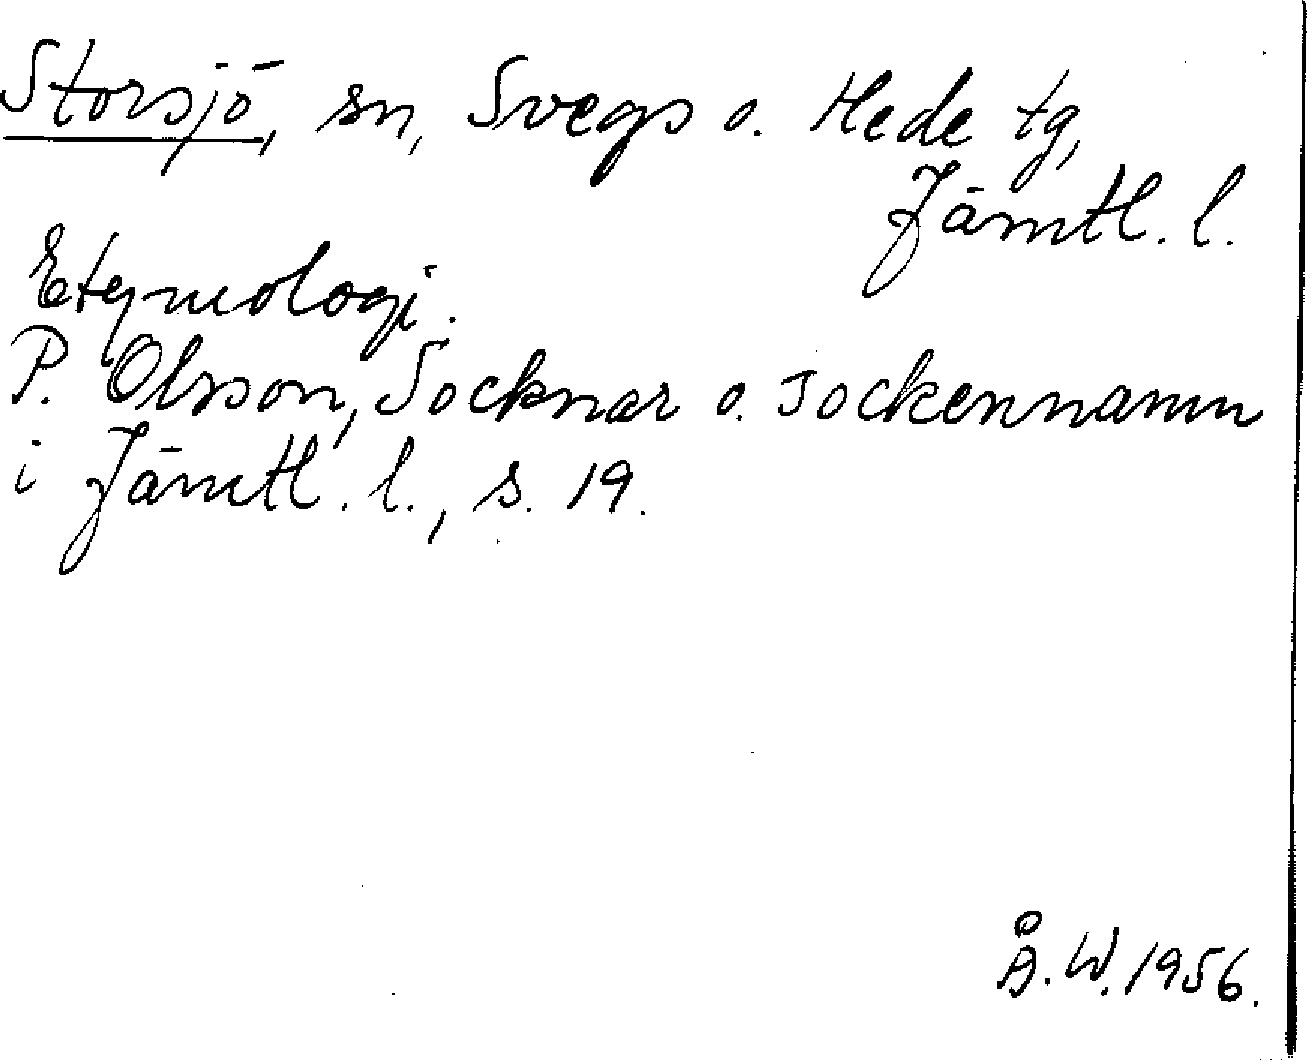 Storsjö, sn, Svegs o. Hede tg,
Jämtl. l.
Etymologi.
P. Olsson, Socknar o. sockennamn
i Jämtl. l., s. 19.
Å. W. 1956.